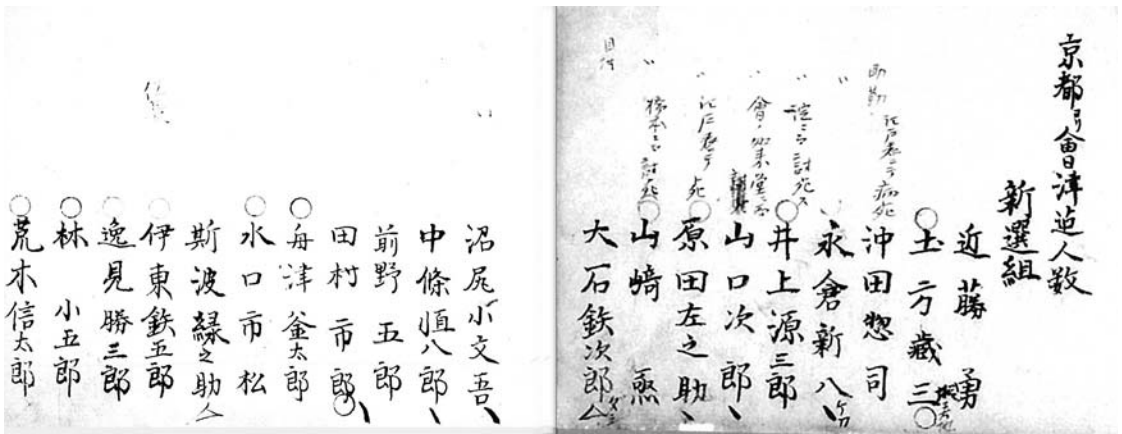 京都ヨリ會津迠人数
新選組
近藤勇
土方歳三
助勤 江戸ニテ病死
沖田惣司
〃
永倉新八
〃 淀ニテ討死ス
井上源三郎
〃 會津如来堂ニテ
山口次郎
〃 江戸ニテ死
原田左之助
〃 橋本ニテ討死
山崎烝
目付
大石鉄次郎
〃
沼尻小文吾
中條恒八郎
前野五郎
田村市郎
舟津釜太郎
水口市松
斯波緑之助
伊東鉄五郎
逸見勝三郎
林小五郎
荒木信太郎